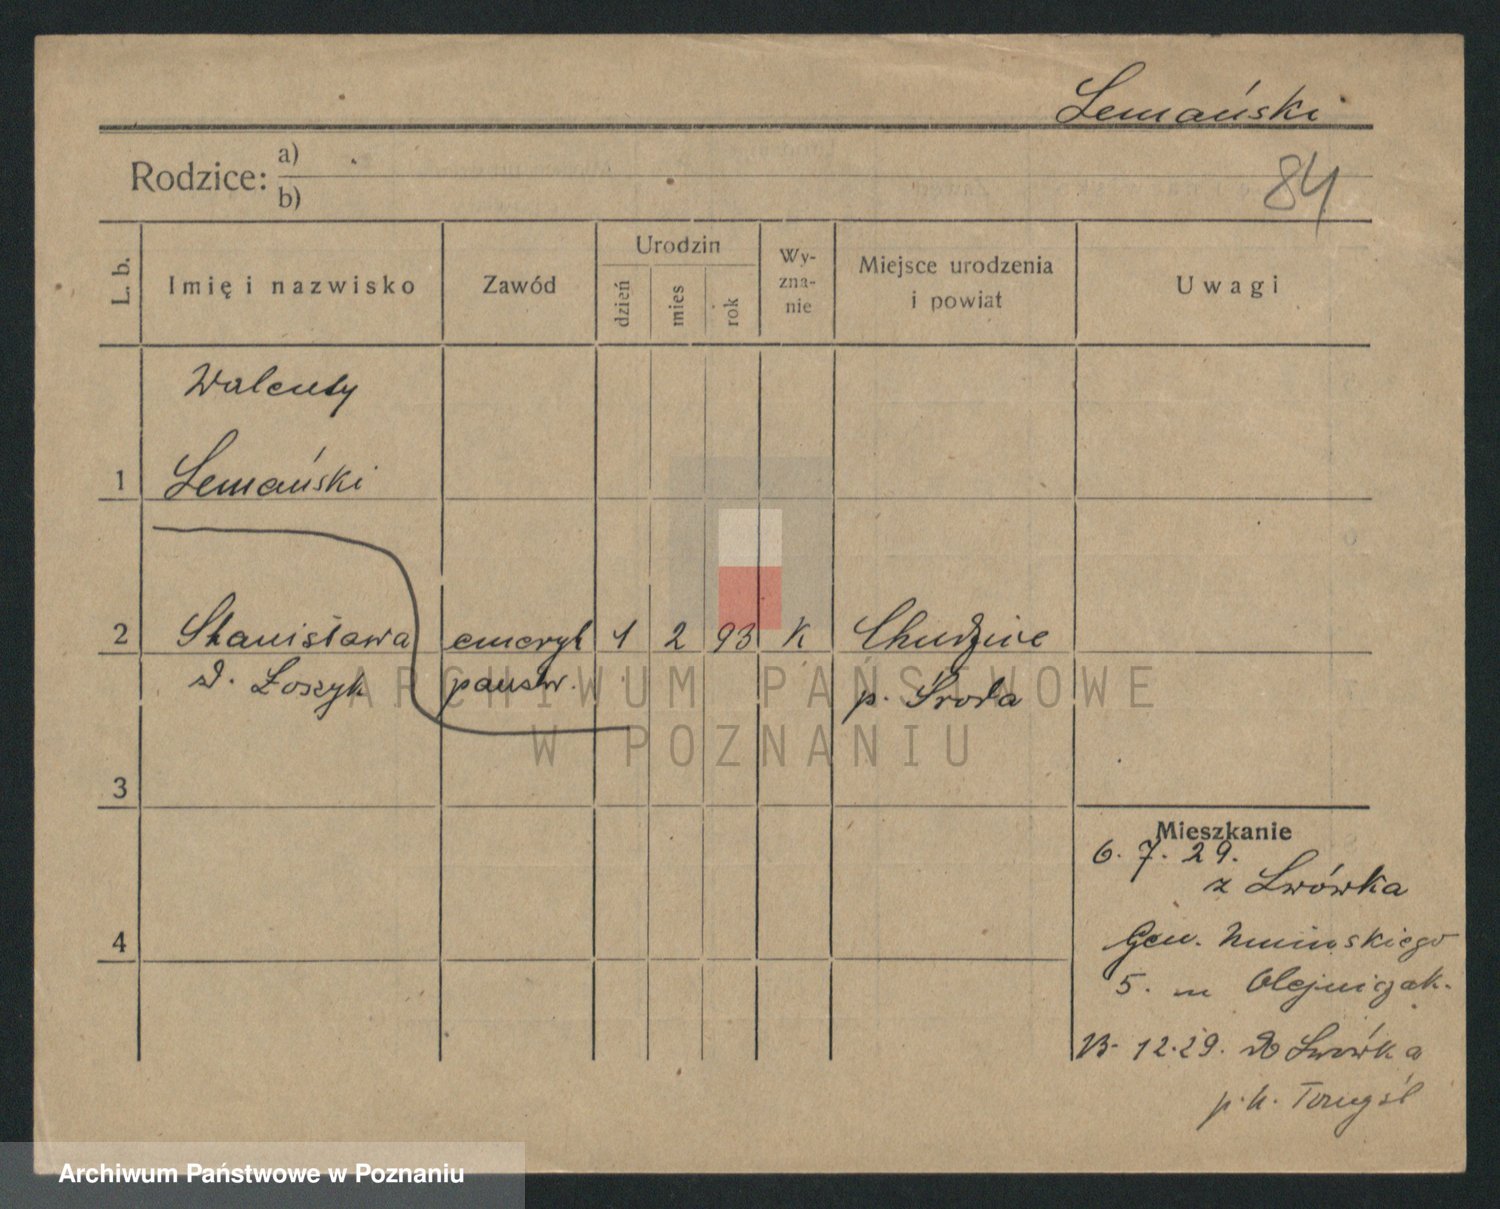 Lemański
Rodzice: a)
b)
84
L. b.
Imię i nazwisko
Zawód
Urodzin
dzień
mies
rok
Wy-
zna-
nie
Miejsce urodzenia
i powiat
Uwagi
Walenty
1 Lemański
2 Stanisława emeryt 1 2 93 K Chudzice
d. Łoszyk państw. p. Środa
3
Mieszkanie
6. 7. 29.
z Lwówka
4
Gen. Umińskiego
5. m Olejniczak.
13. 12. 29. do Lwówka
p. n. Tomyśl
ARCHIWUM PAŃSTWOWE
W POZNANIU
Archiwum Państwowe w Poznaniu